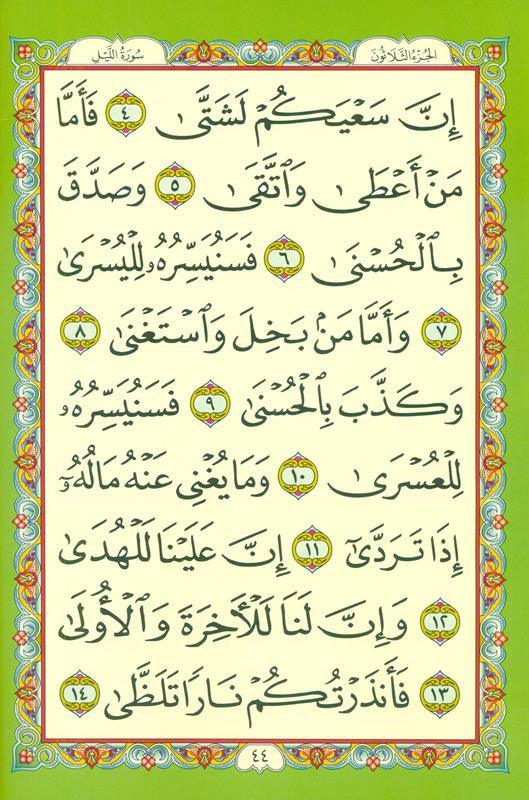 الجزء الثلاثون
سورة الليل
إِنَّ سَعْيَكُمْ لَشَتَّىٰ ٤ فَأَمَّا
مَنْ أَعْطَىٰ وَٱتَّقَىٰ ٥ وَصَدَّقَ
بِٱلْحُسْنَىٰ ٦ فَسَنُيَسِّرُهُۥ لِلْيُسْرَىٰ
٧ وَأَمَّا مَنۢ بَخِلَ وَٱسْتَغْنَىٰ ٨
وَكَذَّبَ بِٱلْحُسْنَىٰ ٩ فَسَنُيَسِّرُهُۥ
لِلْعُسْرَىٰ ١٠ وَمَا يُغْنِى عَنْهُ مَالُهُۥٓ
إِذَا تَرَدَّىٰٓ ١١ إِنَّ عَلَيْنَا لَلْهُدَىٰ
١٢ وَإِنَّ لَنَا لَلْـَٔاخِرَةَ وَٱلْأُولَىٰ
١٣ فَأَنذَرْتُكُمْ نَارًا تَلَظَّىٰ ١٤
٤٤